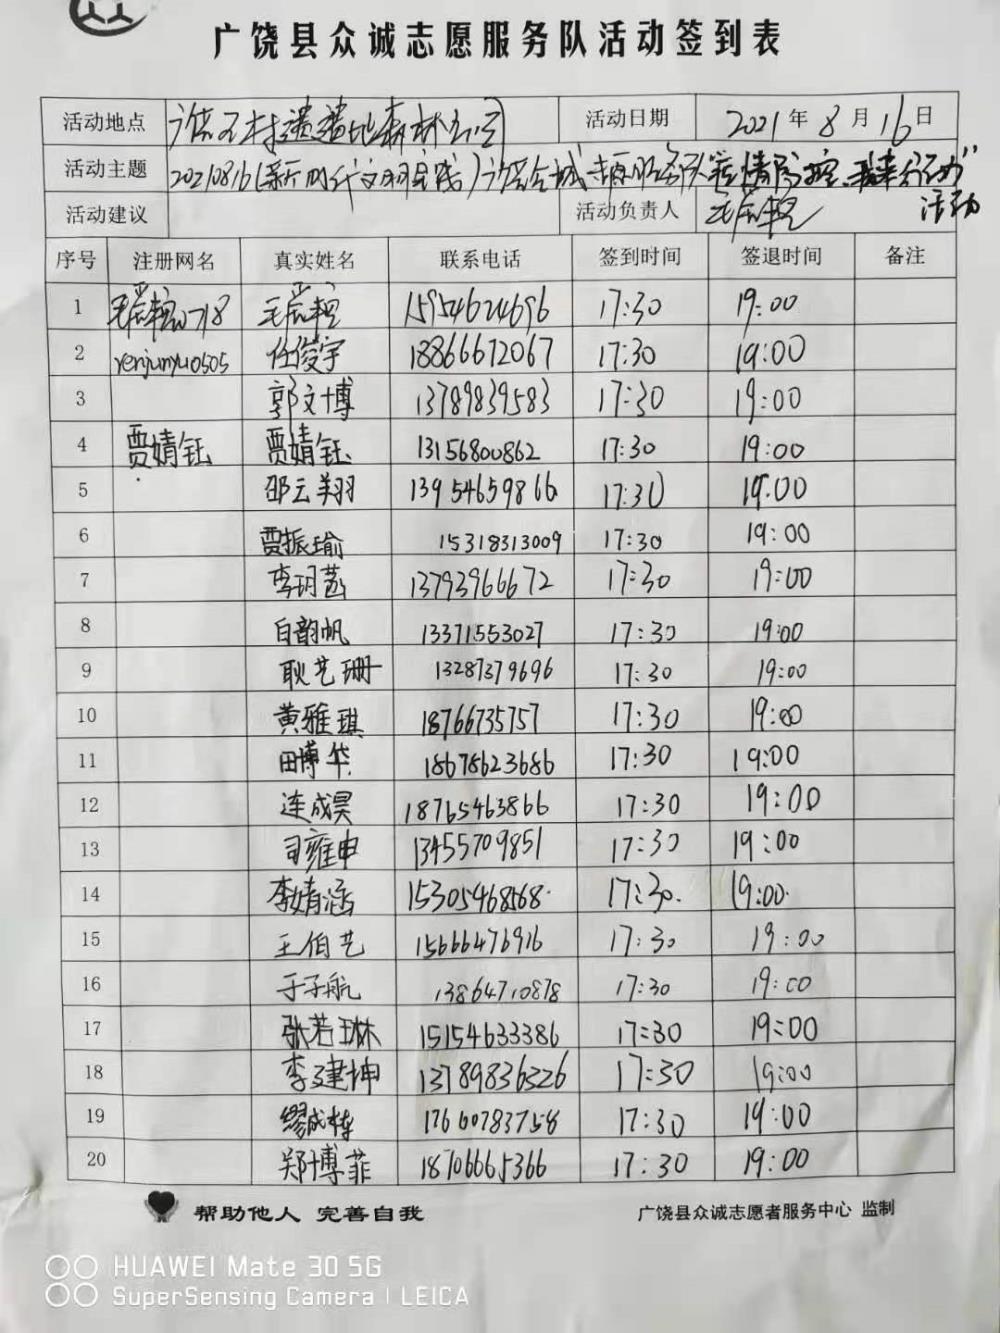 广饶县众诚志愿服务队活动签到表
活动地点 活动日期 2021年8月16日
活动主题 20210816(新时代文明实践)广饶众诚志愿服务队"疫情防控
活动建议 活动负责人 活动
序号 注册网名 真实姓名 联系电话 签到时间 签退时间 备注
1 15954624696 17:30 19:00
2 renjunyu0505 任俊宇 18866672067 17:30 19:00
3 郭文博 13789839583 17:30 19:00
4 贾婧钰 贾婧钰 13156800862 17:30 19:00
5 邵云翔 13954659866 17:30 19:00
6 贾振瑜 15318313009 17:30 19:00
7 李玥菡 13793966672 17:30 19:00
8 白韵帆 13371553027 17:30 19:00
9 耿艺珊 13287379696 17:30 19:00
10 黄雅琪 18766735757 17:30 19:00
11 田博华 18678623686 17:30 19:00
12 连成昊 18765463866 17:30 19:00
13 司雍申 13455709851 17:30 19:00
14 李婧涵 15305468568 17:30 19:00
15 王伯艺 15666476916 17:30 19:00
16 于子航 13864710878 17:30 19:00
17 张若琳 15154633386 17:30 19:00
18 李建坤 13789836326 17:30 19:00
19 缪成栋 17660783758 17:30 19:00
20 郑博菲 18706665366 17:30 19:00
帮助他人 完善自我 广饶县众诚志愿者服务中心 监制
HUAWEI Mate 30 5G
SuperSensing Camera | LEICA